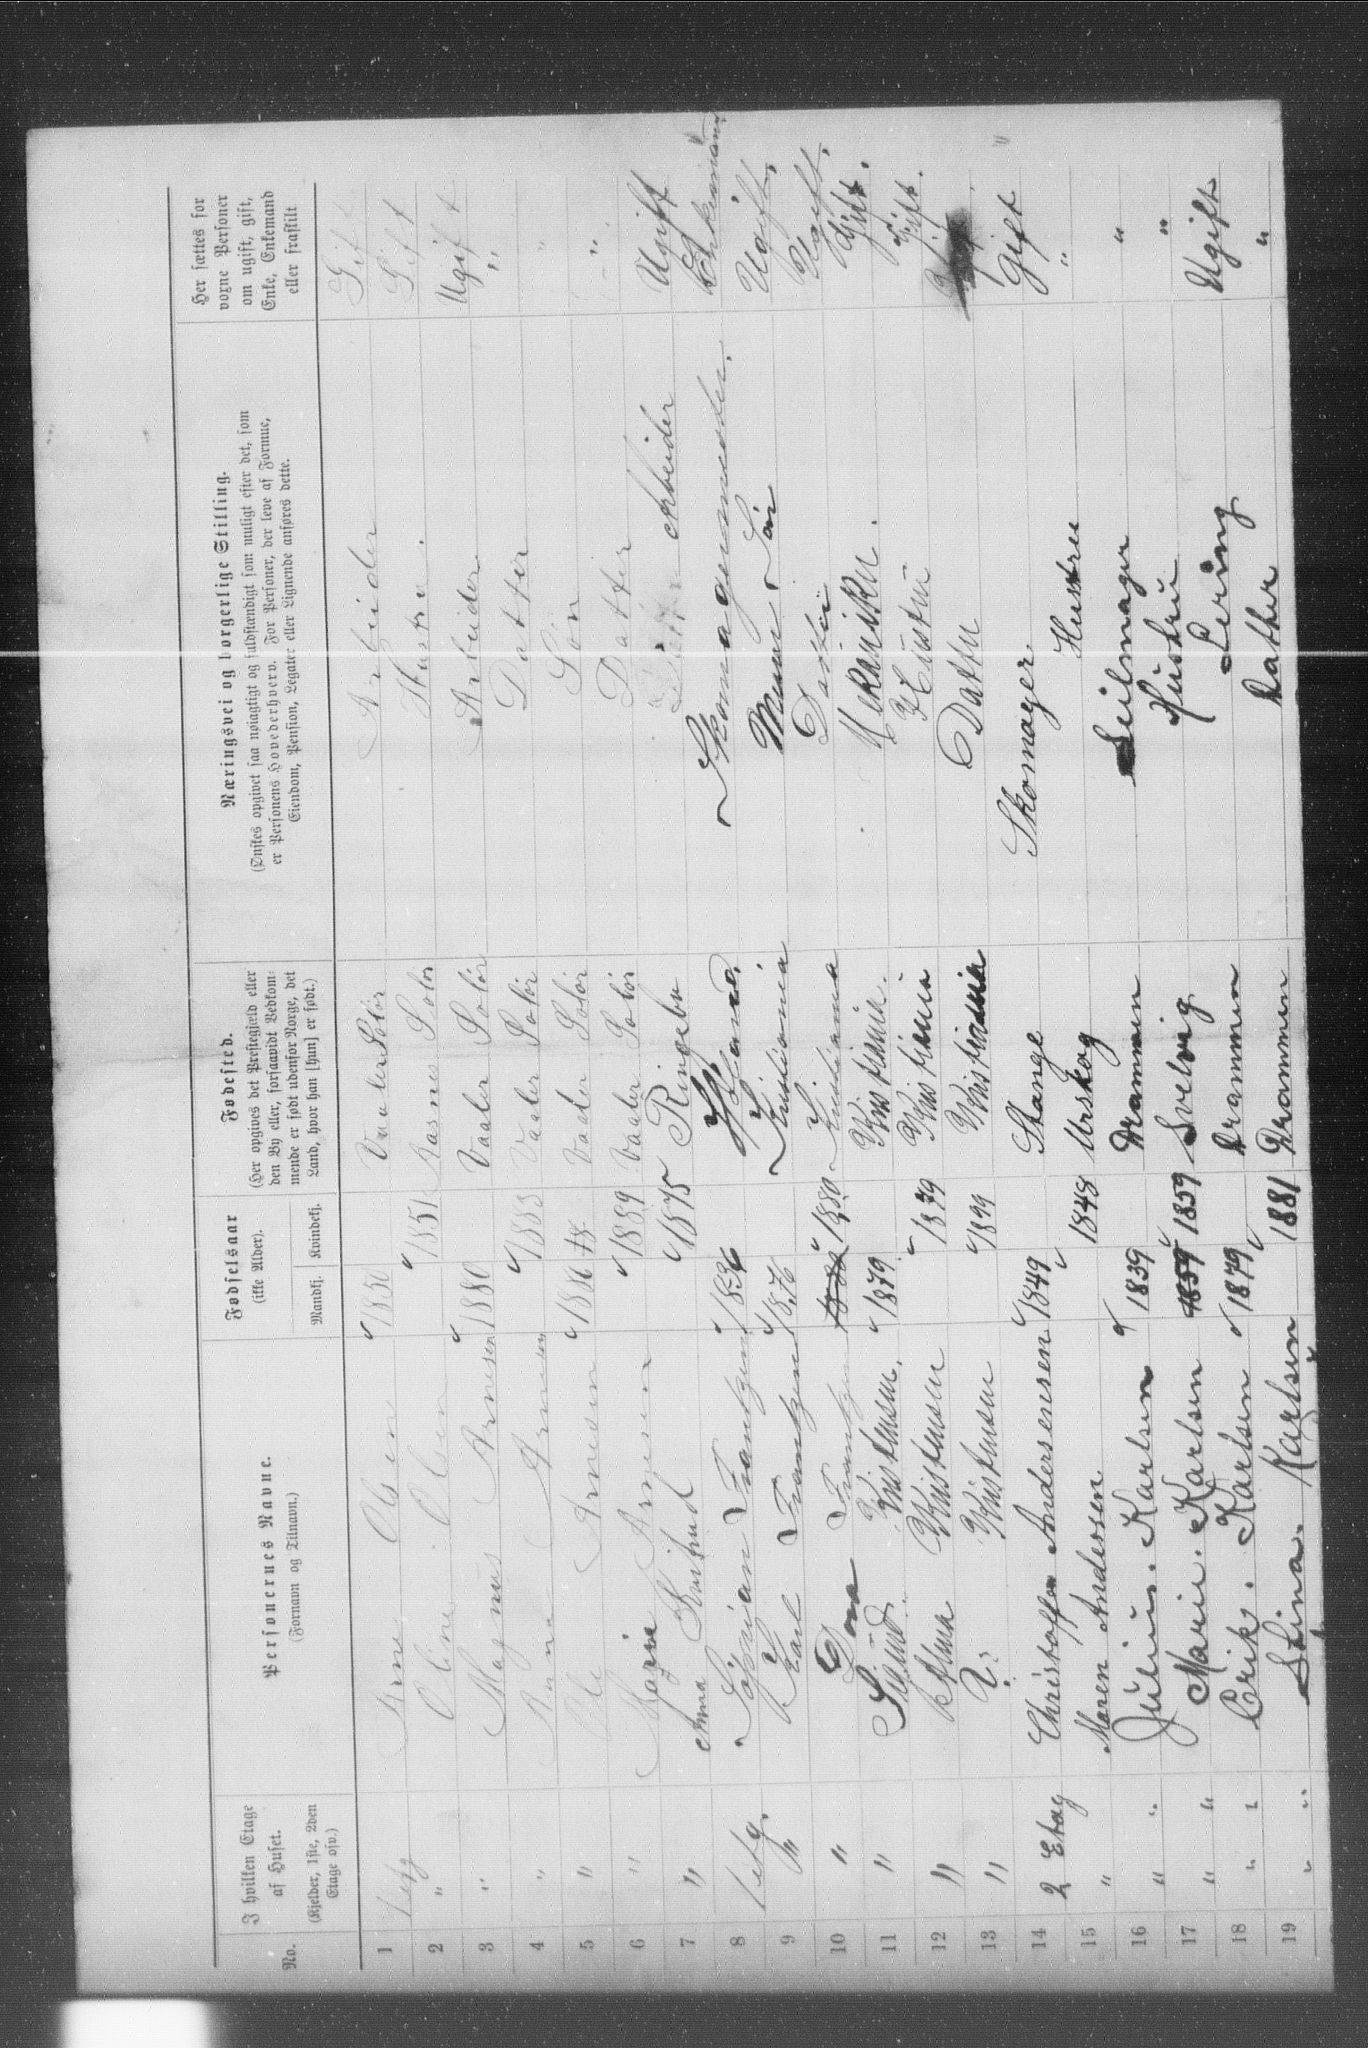 No.
I hvilken Etage af Huset.
(Kjelder, 1ste, 2den Etage osv.)
Personernes Navne.
(Fornavn og Tilnavn.)
Fødselsaar
(ikke Alder).
Mandkj. Kvindekj.
Fødested.
(Her opgives det Præstegjeld eller den By eller, forsaavidt Vedkommende er født udenfor Norge, det Land, hvor han [hun] er født.)
Næringsvei og borgerlige Stilling.
(Ønskes opgivet saa nøiagtigt og fuldstændigt som muligt efter det, som er Personens Hovederhverv. For Personer, der leve af Formue, Eiendom, Pension, Legater eller Lignende anføres dette.
Her sættes for voxne Personer om ugift, gift, Enke, Enkemand eller fraskilt
1 1etg Arne Olsen 1850 Vaaler Solør Arbeider Gift
2 " Oline Olsen 1851 Hasnes Solør Hustru. Gift
3 " Magnus Arnesen 1880 Vaaler Solør Arbeider Ugift
4 " Anna Arnesen 1883 Vaaler Solør Datter "
5 " Ole Arnesen 1886 Vaaler Solør Søn "
6 " Marie Arnesen 1889 Vaaler Solør Datter "
7 " Anna Kustud 1875 Ringebu arbeider Ugift
8 1etg. Frantzen 1836 Skomagermester. Enkemand
9 " Karl Frantzen 1876 Kristiania Murer Søn Ugift.
10 " Frantzen 1880 Kristiania Datter Ugift.
11 " Sigurd Kristensen. 1879 Kristiania. Mekaniker. Gift.
12 " Alma Kristensen 1879 Kristiania Hustru Gift.
13 " Kristensen 1899 Kristiania Datter
14 2 Etag Christoffer Andersensen 1849 Stange Skomager Gift
15 " Maren Andersen 1848 Urskog Hustru "
16 " Julius. Karlsen 1839 Drammen Seilmager "
17 " Marie. Karlsen 1859 Svelvig Hustru "
18 " Erik. Karlsen 1879 Drammen Lering Ugift
19 " Stina. Karlsen 1881 Drammen Datter "